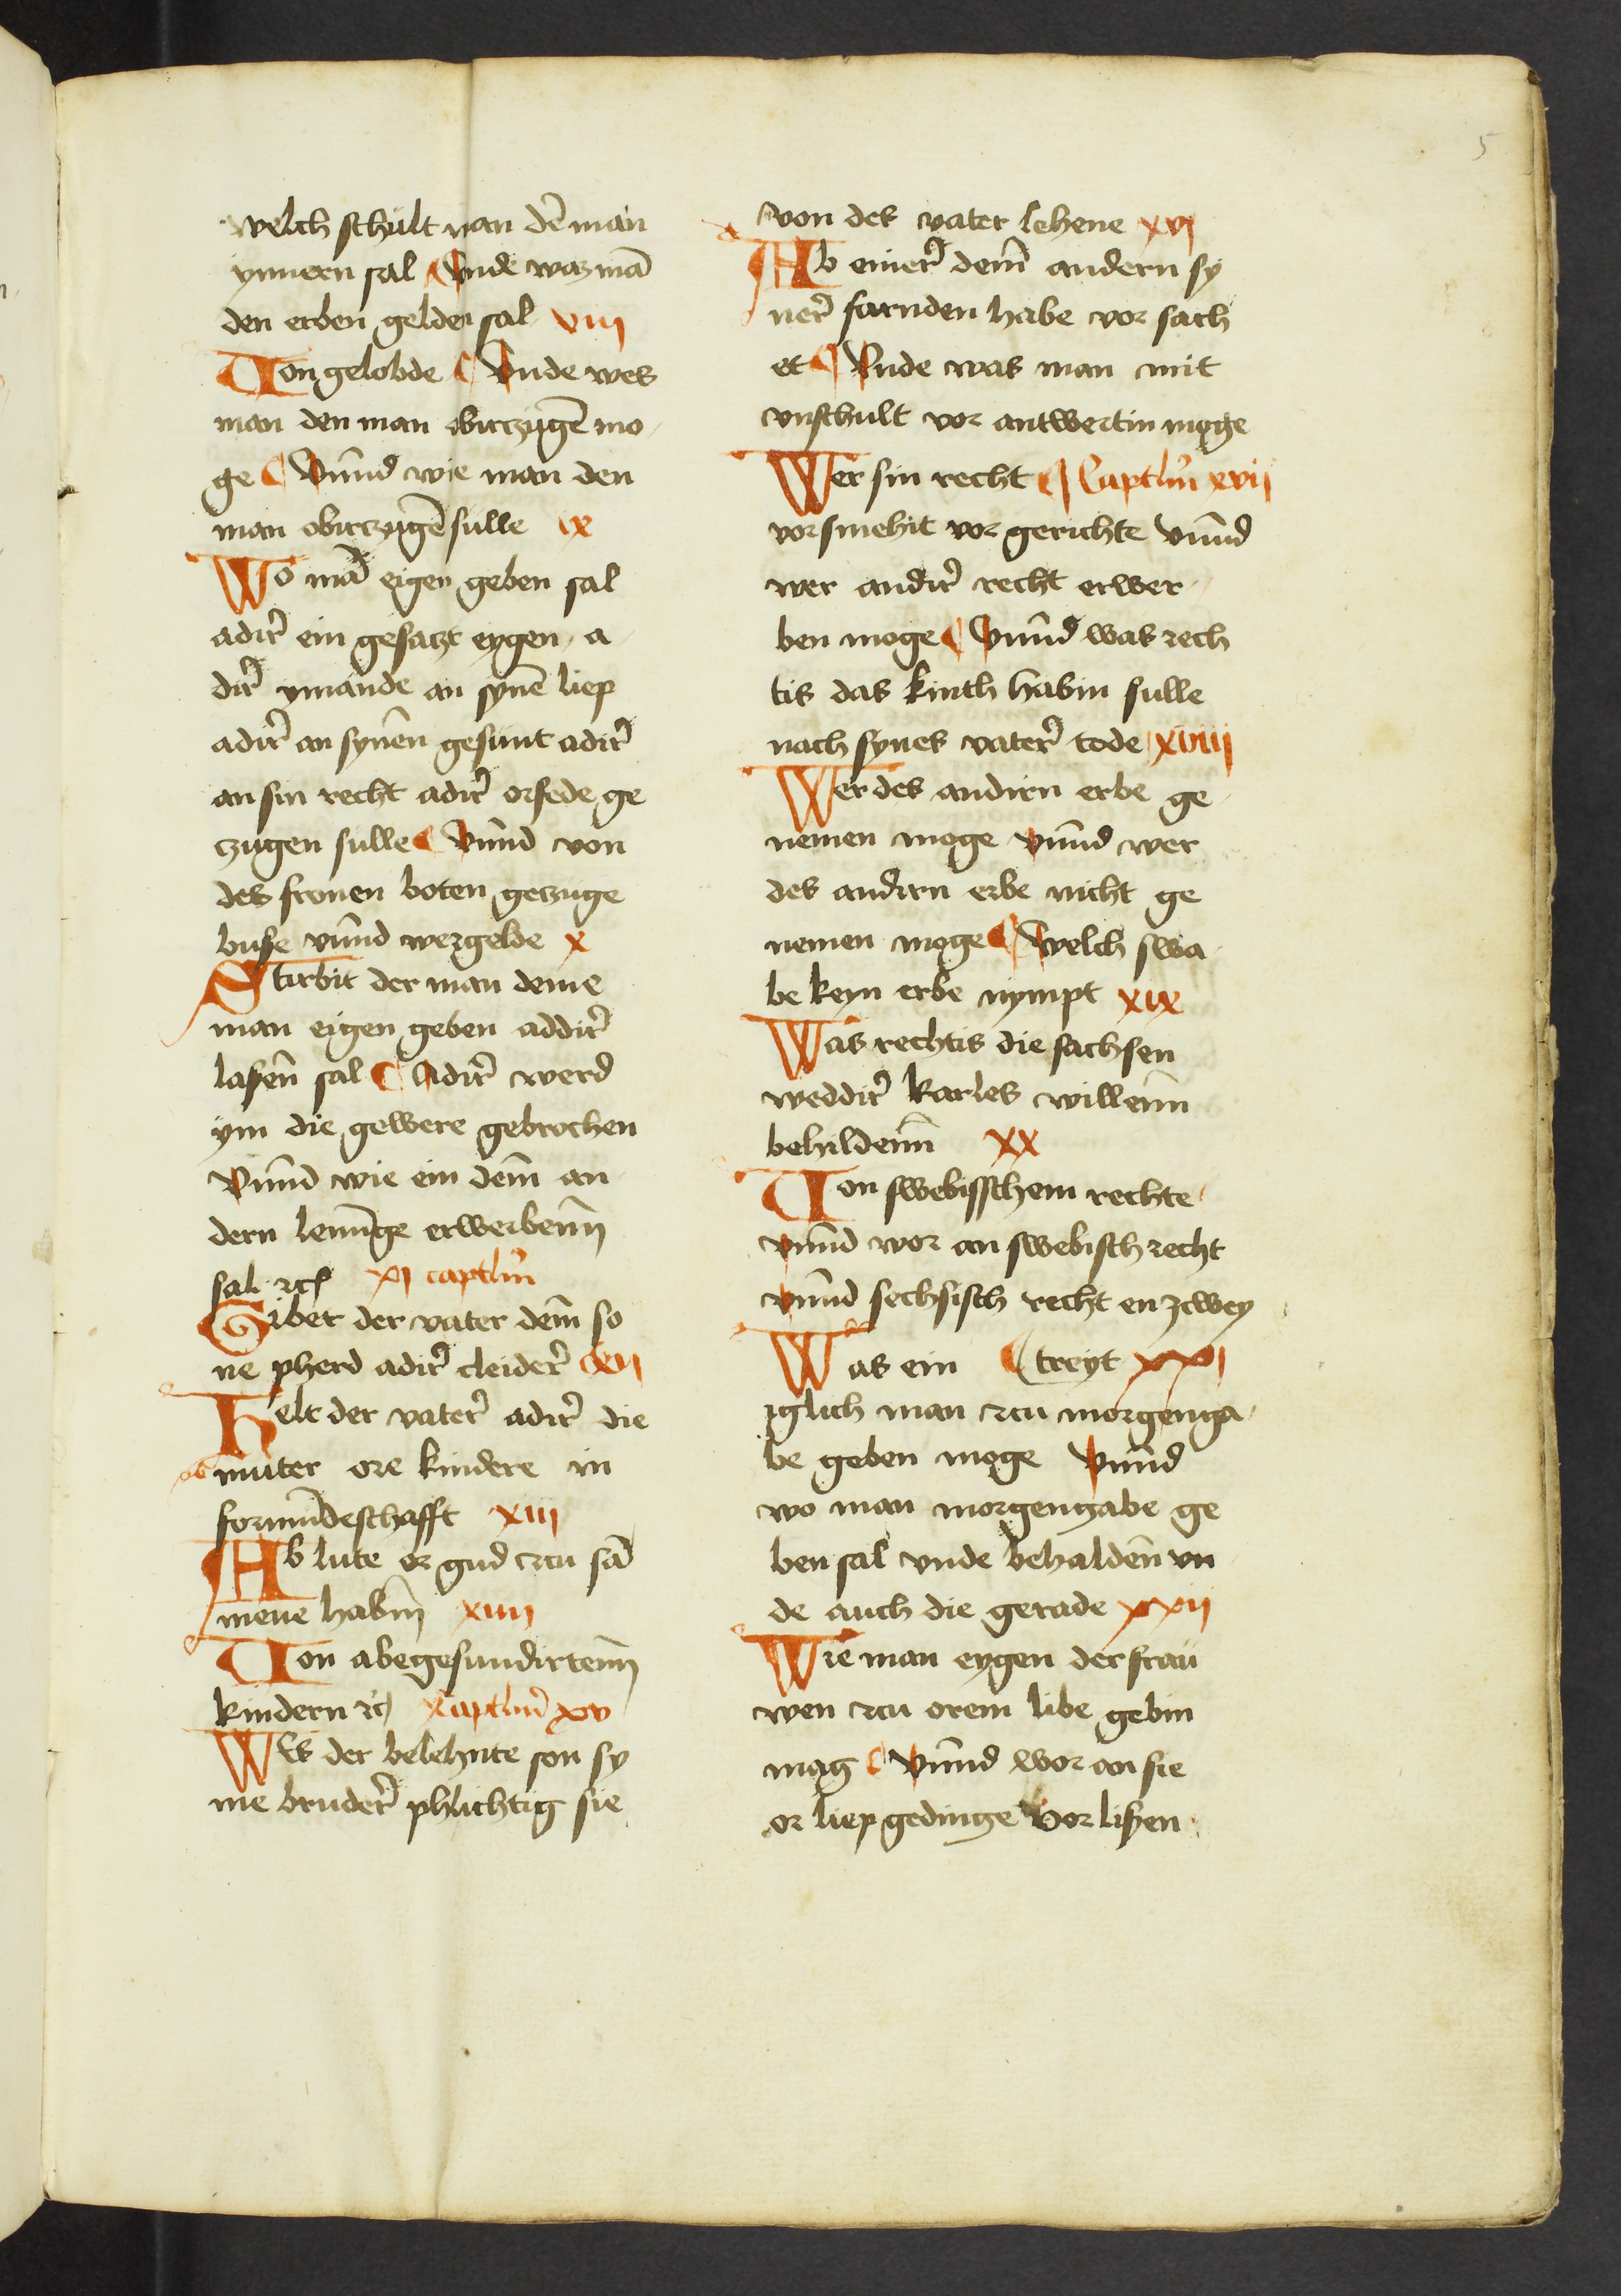 5
welch schult man dē man
ynnern sal ¶ Vnde waz mā
den erben gelden sal viii
Von gelobde ¶ Vnde wes
man den man obirczugē mo
ge ¶ Vnnd wie man den
man obirczugē sulle ix
Wo mā eigen geben sal
adir ein gesaczt eygen a
dir ymande an synē liep
adir an synen gesunt adir
an sin recht adir orfede ge
czugen sulle ¶ Vnnd von
des fronen boten geczuge
buße vnnd wergelde x
Stirbit der man deme
man eigen geben addir
laßen sal ¶ Adir werd
ym die gewere gebrochen
Vnnd wie ein dem an
dern lenunge erwerbenn
sal rc xi captlm
Gibet der vater dem so
ne pherd adir cleider xii
Helt der vater adir die
muter ore kindere in
formundeschafft xiii
Ab lute er gud czu sā
mene habin xiiii
Von abegesundirtenn
kindern rc captlm xv
Wes der belehnte son sy
me bruder phlichtig sie
von des vater lehene xvi
Ab einer dem andern sy
ner farnden habe vor sach
et ¶ Vnde was man mit
vnschult vor antwertin moge
Wer sin recht ¶ Captlm xvii
vorsmehit vor gerichte vnnd
wer andir recht erwer
ben moge ¶ Vnnd was rech
tis das kinth habin sulle
nach synes vater tode xviii
Wer des andirn erbe ge
nemen moge vnnd wer
des andirn erbe nicht ge
nemen moge ¶ Welch swa
be keyn erbe nympt xix
Was rechtis die sachsen
weddir karles willenn
behildenn xx
Von swebisschem rechte
vnnd wor an swebisch recht
vnnd sechsisch recht en zcwey
Was ein ¶ treyt xxi
iglich man czu morgenga
be geben moge Vnnd
wo man morgengabe ge
ben sal vnde behalden vn
de auch die gerade xxii
Wie man eygen der frau
wen czu orem libe gebin
mag ¶ Vnnd wor an sie
or liep gedinge vor lißen